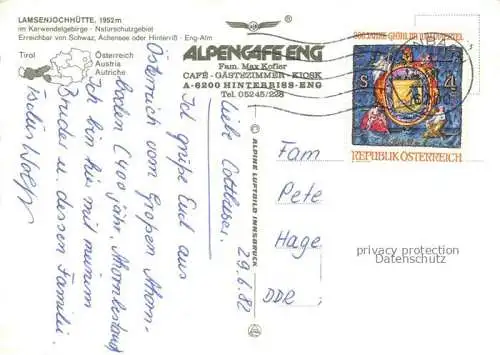 LAMSENJOCHHÜTTE, 1952m
im Karwendelgebirge · Naturschutzgebiet
Erreichbar von Schwaz, Achensee oder Hinterriß - Eng-Alm
Tirol
Österreich
Austria
Autriche
ALPENCAFE ENG
Fam. Max Kofler
CAFÉ - GÄSTEZIMMER - KIOSK
A-6200 HINTERRISS-ENG
Tel. 05245/228
© ALPINE LUFTBILD INNSBRUCK
S 4
REPUBLIK ÖSTERREICH
29.6.82
Liebe Cottbuser.
Ich grüße Euch aus
Österreich vom Großen Ahorn-
boden (400 jähr. Ahornbestand
Ich bin hier mit meinem
Bruder u. dessen Familie.
Fam
Pete
Hage
DDR
privacy protection
Datenschutz